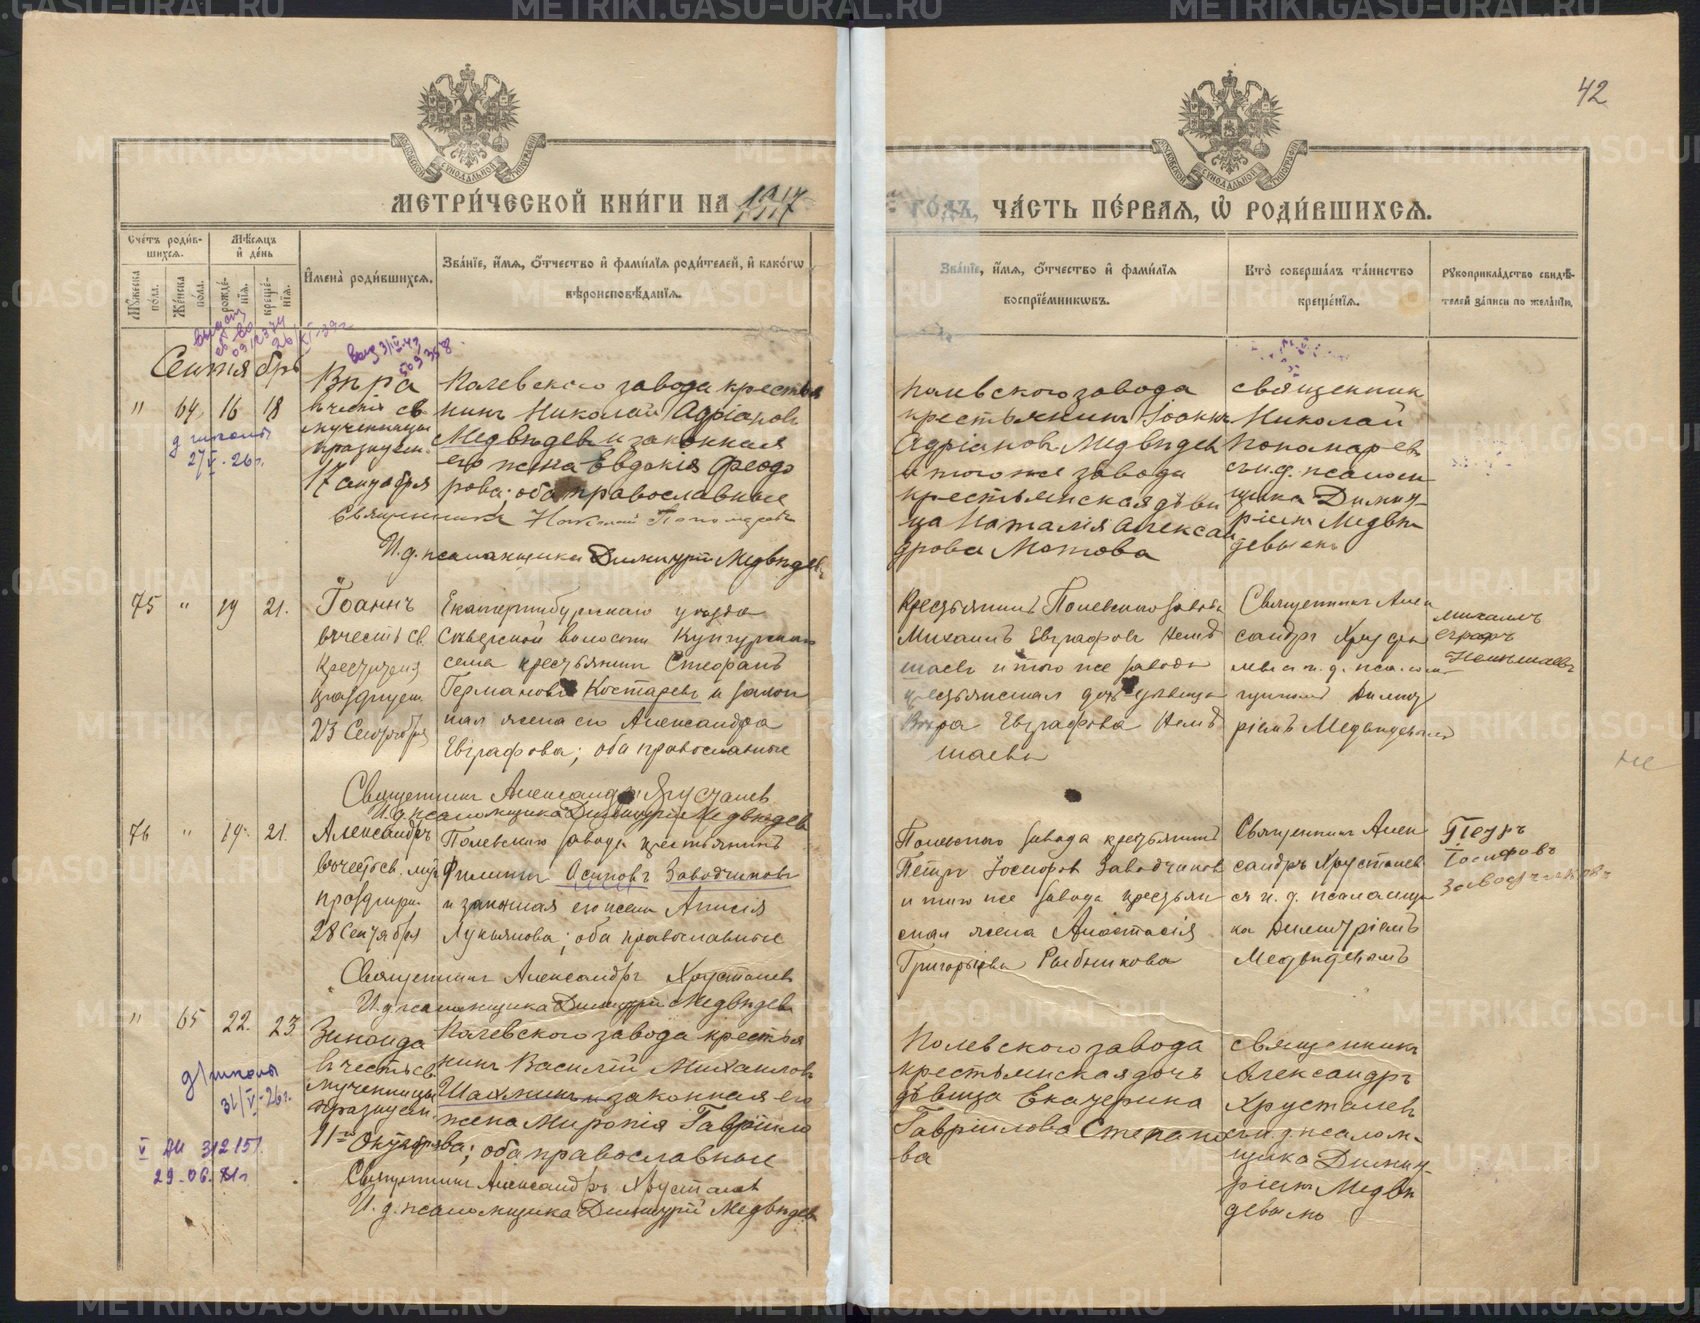 42
МЕТРИ́ЧЕСКОЙ КНИ́ГИ НА 1917
ГО́ДЪ, ЧА́СТЬ ПЕ́РВАЯ, Ѡ РОДИ́ВШИХСЯ.
Сче́тъ роди́в-
шихся.
Мѣ́сяцъ
и де́нь
Му́жеска
по́ла.
Же́нска
по́ла.
рожде́-
нія.
креще́-
нія.
Имена̀ роди́вшихся.
Зва́ніе, и́мя, о́тчество и фами́лія роди́телей, и како́гѡ
вѣроисповѣ́данія.
Зва́ніе, и́мя, о́тчество и фами́лія
воспріе́мниковъ.
Кто̀ соверша́лъ та́инство
креще́нія.
Рукоприкла́дство свидѣ́-
телей за́писи по жела́нію.
Сентябрь
" 64 16 18
Вѣра
въ честь св
мученицы
празнуем.
17 сентября
Полевского завода крестья
нинъ Николай Адріановъ
Медвѣдевъ и законная
его жена Евдокія Феодо
рова; оба православные
Священникъ Николай Пономаревъ
И.д. псаломщика Димитрій Медвѣдевъ
Полевского завода
крестьянинъ Іоаннъ
Адріановъ Медвѣдевъ
и того же завода
крестьянская дѣви
ца Наталія Алексан
дрова Мотова
священник
Николай
Пономарев
съ и.д. псалом
щика Димит-
ріемъ Медвѣ
девымъ
д/школы
27/V-26г.
75 " 19 21.
Іоаннъ
въ честь св.
Крестителя
празднуем.
23 Сентября
Екатеринбургскаго уезда
волости Кунгурскаго
села крестьянинъ Стефанъ
Германовъ Костаревъ и закон
ная жена его Александра
Евграфова; оба православные
Священникъ Александръ Хрусталев
И.д. псаломщика Димитрій Медвѣдев
Крестьянинъ Полевского завода
Михаилъ Евграфовъ Немѣ
шаевъ и того же завода
крестьянская дочь девица
Вѣра Евграфова Немѣ
шаева
Священникъ Алек
сандръ Хруста
левъ с и. д. псалом
щикомъ Димит
ріемъ Медвѣдевымъ
михаилъ
не
76 " 19. 21.
Александръ
въ честь св. муч
празднуем.
28 Сентября
Полевского завода крестьянинъ
Филиппъ Осиповъ Заводчиковъ
и законная его жена Анисія
Лукьянова; оба православные
Священникъ Александръ Хрусталевъ
И.д. псаломщика Димитрій Медвѣдевъ
Полевского завода крестьянинъ
Петръ Іосифов Заводчиков
и того же завода крестьян
ская жена Анастасія
Григорьева Рыбникова
Священникъ Алек
сандръ Хрусталев
ся и. д. псаломщи
ка Димитріемъ
Медвѣдевымъ
Петръ
Іосифовъ
Заводчиковъ
" 65 22. 23
Зинаида
въ честь св
мученицы
празнуем.
11го Октября
Полевского завода крестья
нинъ Василій Михаиловъ
Шахминъ и законная его
жена Миропія Гаврило
ва; оба православные
Священникъ Александръ Хрусталев
И. д. псаломщика Димитрій Медвѣдев
Полевского завода
крестьянская дочь
дѣвица Екатерина
Гаврилова Степано
ва
священникъ
Александръ
Хрусталев
съ и.д. псалом-
щика Димит-
ріемъ Медвѣ
девымъ
д/школы
31/V-26г.
29.06.81г
METRIKI.GASO-URAL.RU